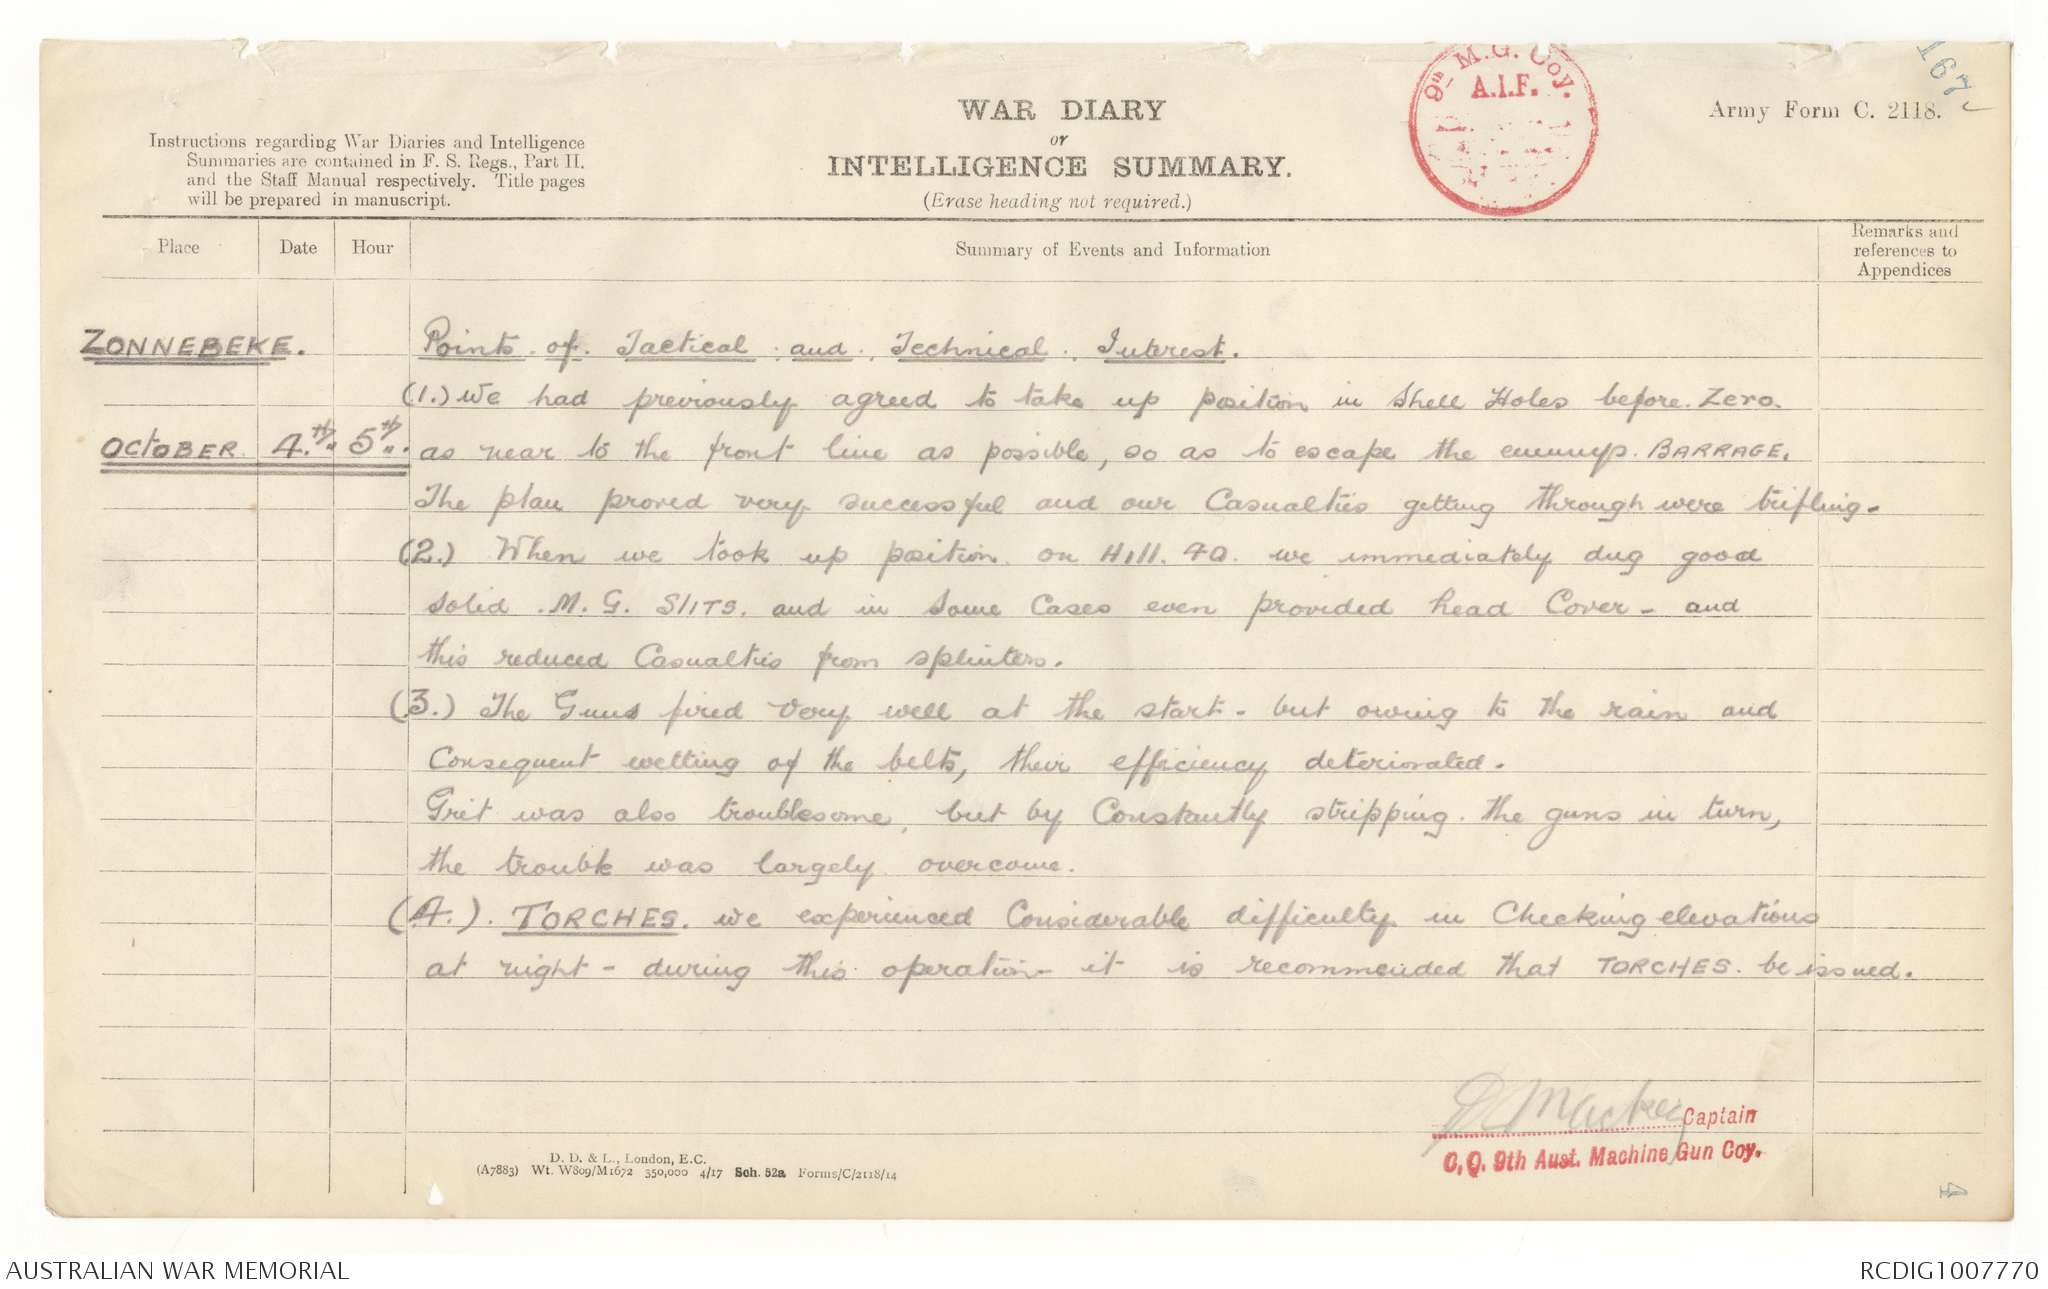 9th M.G. Coy.
A.I.F.
167
WAR DIARY
or
INTELLIGENCE SUMMARY.
(Erase heading not required.)
Army Form C. 2118.
Instructions regarding War Diaries and Intelligence
Summaries are contained in F. S. Regs., Part II.
and the Staff Manual respectively. Title pages
will be prepared in manuscript.
Place Date Hour Summary of Events and Information Remarks and references to Appendices
ZONNEBEKE. Points of Tactical and Technical Interest.
(1.) We had previously agreed to take up position in Shell Holes before Zero.
OCTOBER 4th.. 5th... as near to the front line as possible, so as to escape the enemys BARRAGE.
The plan proved very successful and our Casualties getting through were trifling.
(2.) When we took up position on Hill. 40. we immediately dug good
solid M. G. SlITS. and in some Cases even provided head Cover - and
this reduced Casualties from splinters.
(3.) The Guns fired very well at the start - but owing to the rain and
Consequent wetting of the belts, their efficiency deteriorated.
Grit was also troublesome, but by Constantly stripping the guns in turn,
the trouble was largely overcome.
(4.). TORCHES. we experienced Considerable difficulty in Checking elevations
at night - during this operation - it is recommended that TORCHES. be issued.
Captain
O.C. 9th Aust. Machine Gun Coy.
D. D. & L., London, E.C.
(A7883) Wt. W809/M1672 350,000 4/17 Sch. 52a Forms/C/2118/14
4
AUSTRALIAN WAR MEMORIAL RCDIG1007770